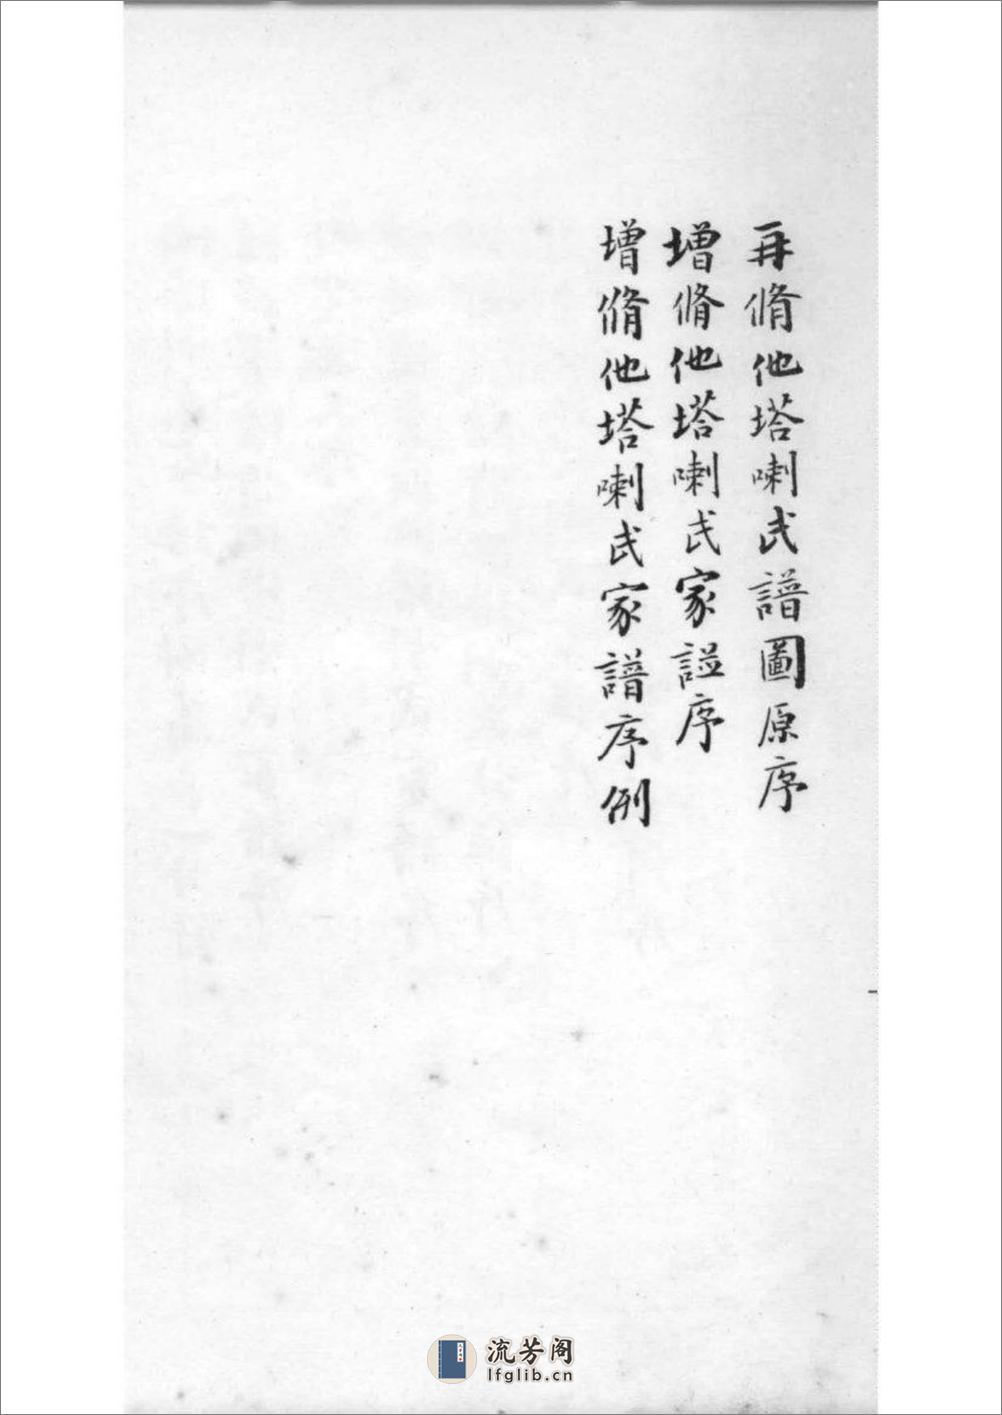 再脩他塔喇氏譜圖原序
增脩他塔喇氏家譜序
增脩他塔喇氏家譜序例
流芳阁
lfglib.cn